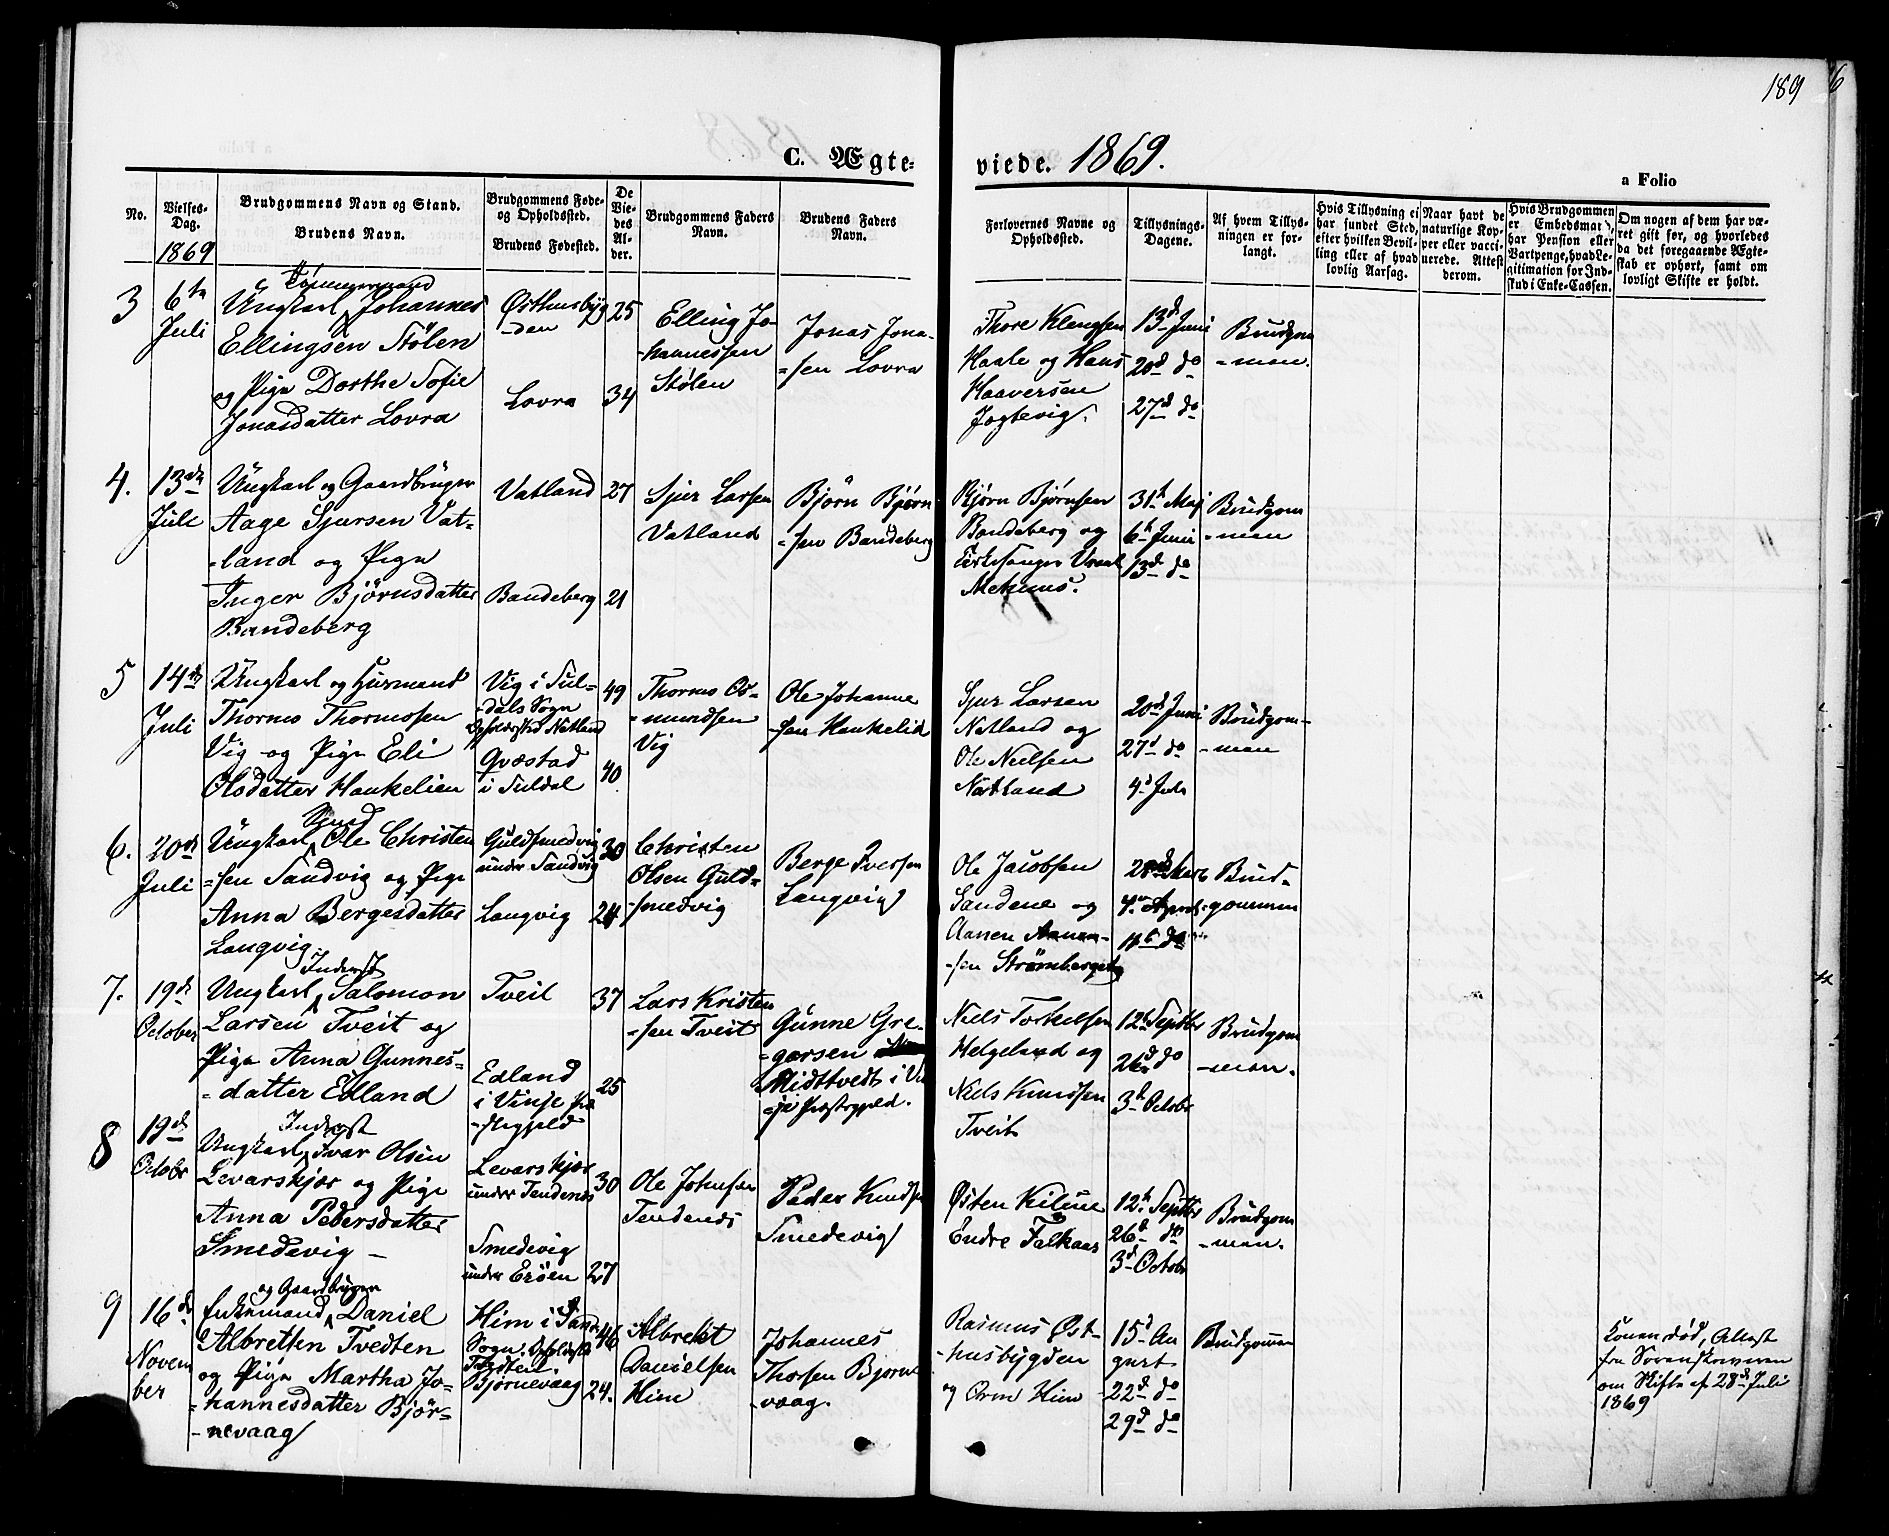 189
6
C. Ægte-
viede. 1869.
a Folio
No.
Vielses-
Dag.
1869
Brudgommens Navn og Stand.
Brudens Navn.
Brudgommens Føde-
og Opholdssted.
Brudens Fødested.
De
Vie-
des
Al-
der.
Brudgommens Faders
Navn.
Brudens Faders
Navn.
Forlovernes Navne og
Opholdssted.
Tillysnings-
Dagene.
Af hvem Tillys-
ningen er for-
langt.
Hvis Tillysning ei
har fundet Sted,
efter hvilken Bevil-
ling eller af hvad
lovlig Aarsag.
Naar havt de
naturlige Kop-
per eller vacci-
nerede. Attest
derom.
Hvis Brudgommen
er Embedsmand,
har Pension eller
Vartpenge, hvad Le-
gitimation for Ind-
skud i Enke-Cassen.
Om nogen af dem har væ-
ret gift før, og hvorledes
da det foregaaende Ægte-
skab er ophørt, samt om
lovligt Skifte er holdt.
3
6te
Juli
Tømmermand
Ungkarl Johannes
Ellingsen Stølen
og Pige Dorthe Sofie
Jonasdatter Lovra
Østhusbyg
-den
Lovra
25
34
Elling Jo-
-hannessen
Stølen
Jonas Jona-
-sen Lovra
Thore Klengsen
Haale og Hans
Haaversen
Jogtevig.
13d Juni
20d do
27d do
Brudgom
-men.
4.
13de
Juli
Ungkarl og Gaardbruger
Aage Sjursen Vat-
-land og Pige
Inger Bjørnsdatter
Bandeberg
Vatland
Bandeberg
27
21
Sjur Larsen
Vatland
Bjørn Bjørn
-sen Bandeberg
Bjørn Bjørnsen
Bandeberg og
Kirkesanger
Mehuus.
31te Maj
6te Juni
13d do
Brudgom
-men
5
14de
Juli
Ungkarl og Husmand
Thormo Thormosen
Vig og Pige Eli
Olsdatter Haukelien
Vig i Sul-
-dals Sogn
Opholdssted Natland
Qvæstad
i Suldal
49
40
Thormo Os-
-mundsen
Vig
Ole Johanne
-sen Haukelid
Sjur Larsen
Natland og
Ole Neilsen
Natland
20d Juni
27d do
4d Juli
Brudgom-
-men
6.
20de
Juli
Ungkarl Ole Christen
-sen Sandvig og Pige
Anna Bergesdatter
Langvig.
Guldsmedvig
under Sandvig
Langvig
30
24
Christen
Olsen Guld-
-smedvig
Berge Iversen
Langvig
Ole Jacobsen
Sandene og
Aanen Aanen-
-sen Strømberget
28de Marts
4de April
11te do
Brud-
gommen
7.
19de
October
Inderst
Ungkarl Salomon
Larsen Tveit og
Pige Anna Gunnes-
-datter Edland
Tveit
Edland
i Vinje Præ
-stegjeld
37
25
Lars Kristen
-sen Tveit
Gunne Gre-
-garsen
Midttvedt i Vin
-je Præstegjeld.
Niels Torkelsen
Helgeland og
Niels Knudsen
Tveit
12te Septbr
26d do
3d Octobr
Brudgom
-men.
8
19de
Octobr
Inderst
Ungkarl Ivar Olsen
Levarskjær og Pige
Anna Pedersdatter
Smedevig -
Levarskjær
under Tendenes
Smedevig
under Erøen
30
27
Ole Johnsen
Tendenes
Peder Knudsen
Smedevig
Østen Kilene
Endre Falkaas
12te Septbr
26d do
3d Octobr
Brudgom
-men.
9
16de
Novem
ber
og Gaardbruger
Enkemand Daniel
Albretsen Tvedten
og Pige Martha Jo-
-hannesdatter Bjør-
-nevaag
Him i Sand
Sogn. Opholdssted
Tvedten.
Bjørnevaag
46
24.
Albrekt
Danielsen
Him
Johannes
Thorsen Bjørne
-vaag.
Rasmus Øst-
-husbygden
og Orm Him
15d Au
gust
22d do
29d do
Brudgommen
Konen død, Attest
fra Sorenskriveren
om Skifte af 28d Juli
1869